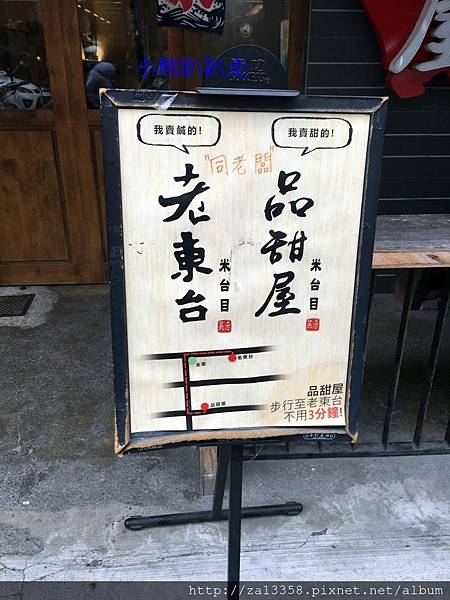 小熊趴趴走
我賣鹹的!
我賣甜的!
"同老闆"
老東台
米台目
品甜屋
米台目
老東台
品甜屋
品甜屋
步行至老東台
不用3分鐘!
http://za13358.pixnet.net/album